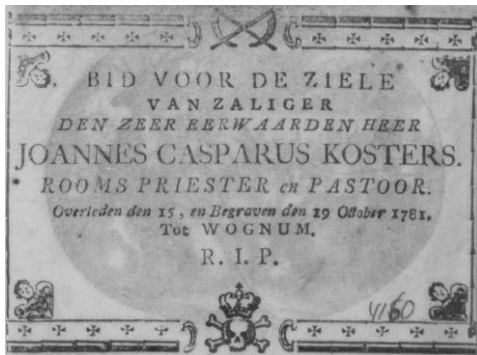 BID VOOR DE ZIELE
VAN ZALIGER
DEN ZEER EERWAARDEN HEER
JOANNES CASPARUS KOSTERS.
ROOMS PRIESTER en PASTOOR.
Overleden den 15, en Begraven den 19 October 1781.
Tot WOGNUM.
R. I. P.
4160